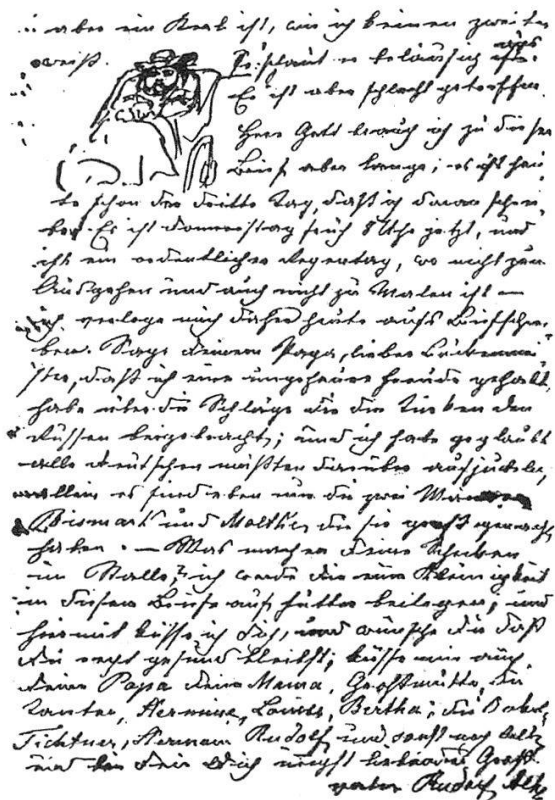 aber ein Kerl ist, wie ich keinen zweiten
weiß. So schaut er beläufig aus.
Er ist aber schlecht getroffen.
Herr Gott brauch ich zu diesem
Brief aber lange; es ist heu
te schon der dritte Tag, daß ich daran schrei
be. Es ist Donnerstag früh 8 Uhr jetzt, und
ist ein ordentlicher Regentag, wo nicht zum
Ausgehen und auch nicht zu Malen ist —
ich verlege mich daher heute aufs Briefschrei
ben. Sage deinem Papa, lieber
daß ich eine ungeheure Freude gehabt
habe über die Schläge die die Türken den
Russen beigebracht; und ich habe geglaubt
alle Deutschen müßten darüber aufjubeln,
allein es sind eben nur die zwei Männer
Bismark und Moltke, die sie groß gemacht
haben. — Was machen deine
im Stalle? ich werde dir eine Kleinigkeit
in diesem Briefe auf Futter beilegen; und
hiermit küsse ich Dich, und wünsche dir daß
du recht gesund bleibst; küsse mir auch
deine Papa deine Mama, Großmutter, die
Tanten, Hermine, Louise, Bertha; die
Tichtner, Herman Rudolf und sonst noch
und bin dein Dich innigst liebender Groß
vater Rudolf Alt